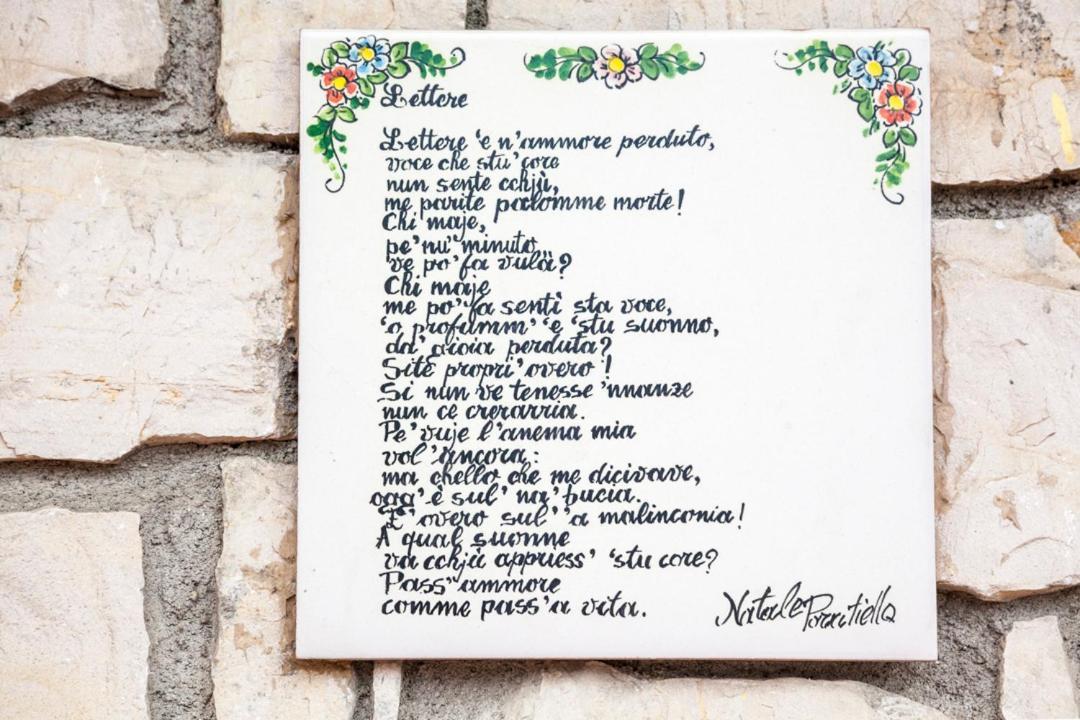 Lettere
Lettere 'e n'ammore perduto,
voce che stu' core
nun sente cchjù,
me parite palomme morte!
Chi maje,
pe' nu' minuto
ve po' fa vulà?
Chi maje
me po' fa sentì sta voce,
'o profumm' 'e 'stu suonno,
da' gioia perduta?
Site propri' overo!
Si nun ve tenesse 'nnanze
nun ce crerarria.
Pe' vuje l'anema mia
vol' ancora:
ma chello che me dicivave,
ogg' è sul' na' bucia.
E' overo sul' 'a malinconia!
A qual suonne
va cchjù appriess' 'stu core?
Pass' 'ammore
comme pass' 'a vita.
Natale